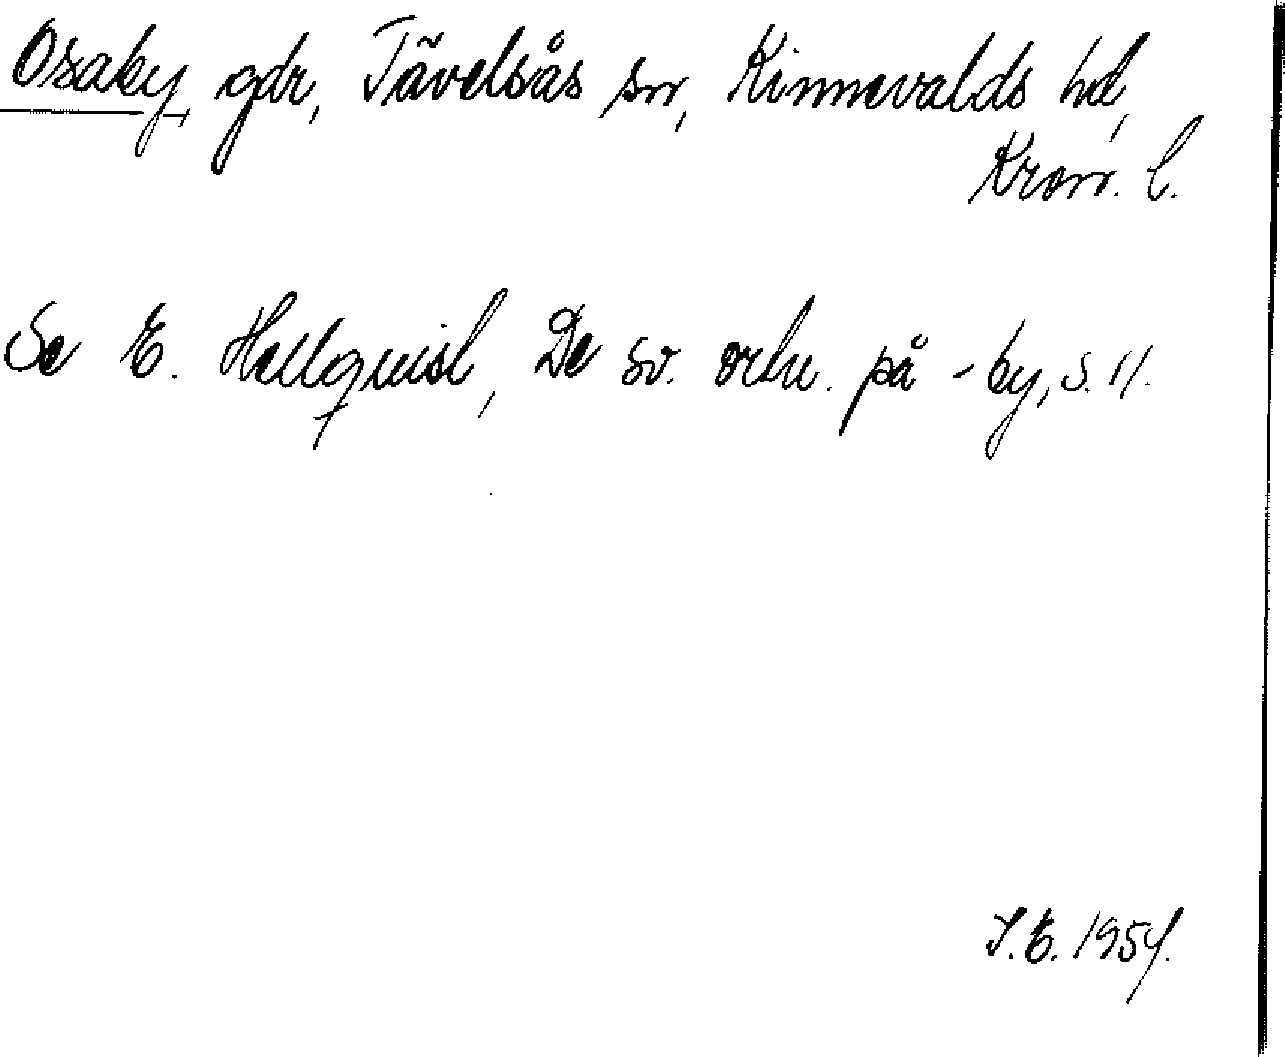 Osaby gdr, Tävelsås sn, Kinnevalds hd,
Kron. l.
Se E. Hellquist, De sv. ortn. på -by, s. 11.
S.E. 1954.